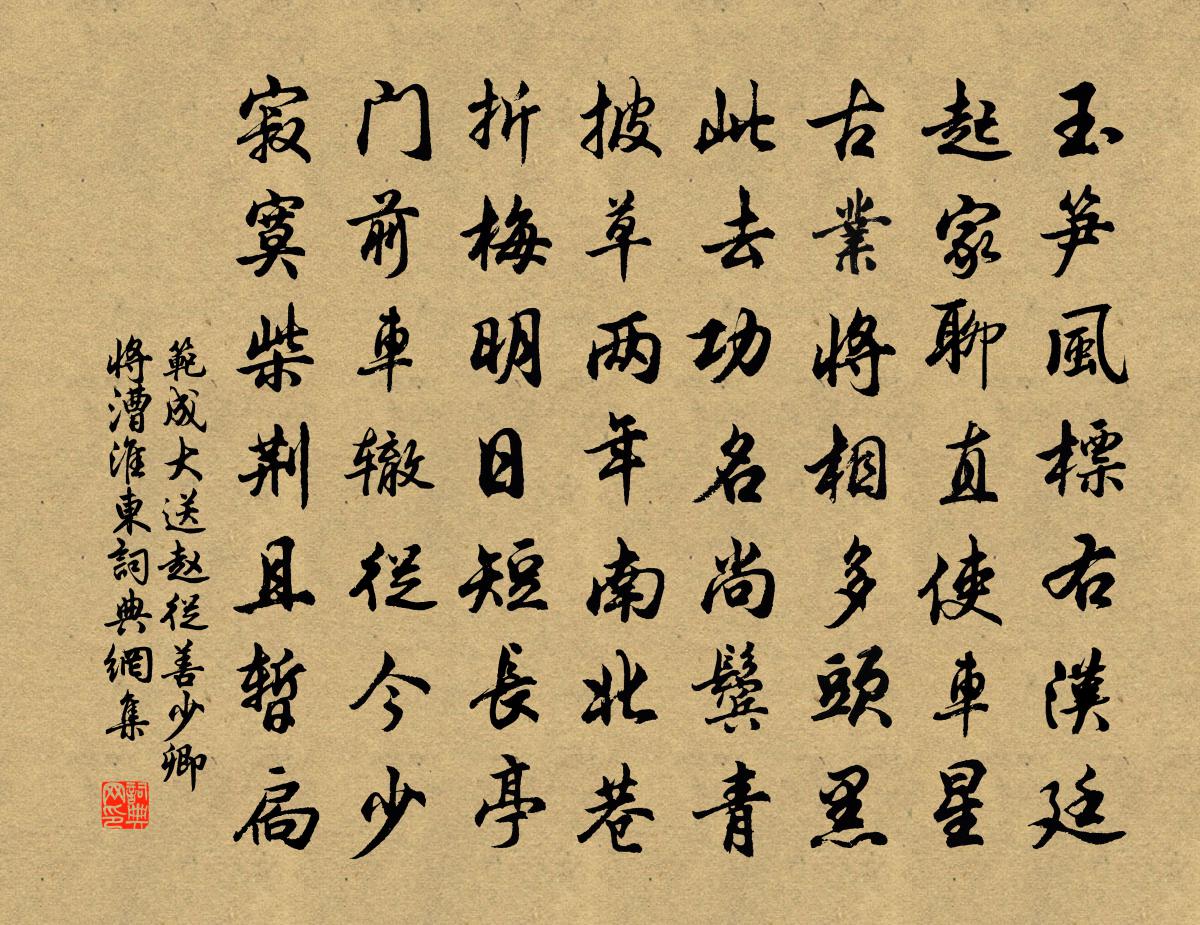 玉笋風標右漢廷
起家聊直使車星
古業將相多頭黑
此去功名尚鬓青
披草两年南北巷
折梅明日短長亭
门前車辙從今少
寂寞柴荆且暂扃
範成大送赵從善少卿
將漕淮東詞典網集
詞典网印